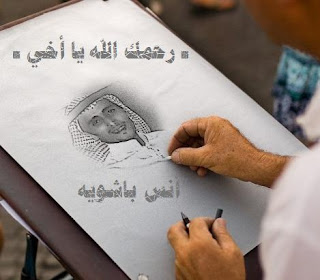 . رحمك الله يا أخي .
انس باشويه